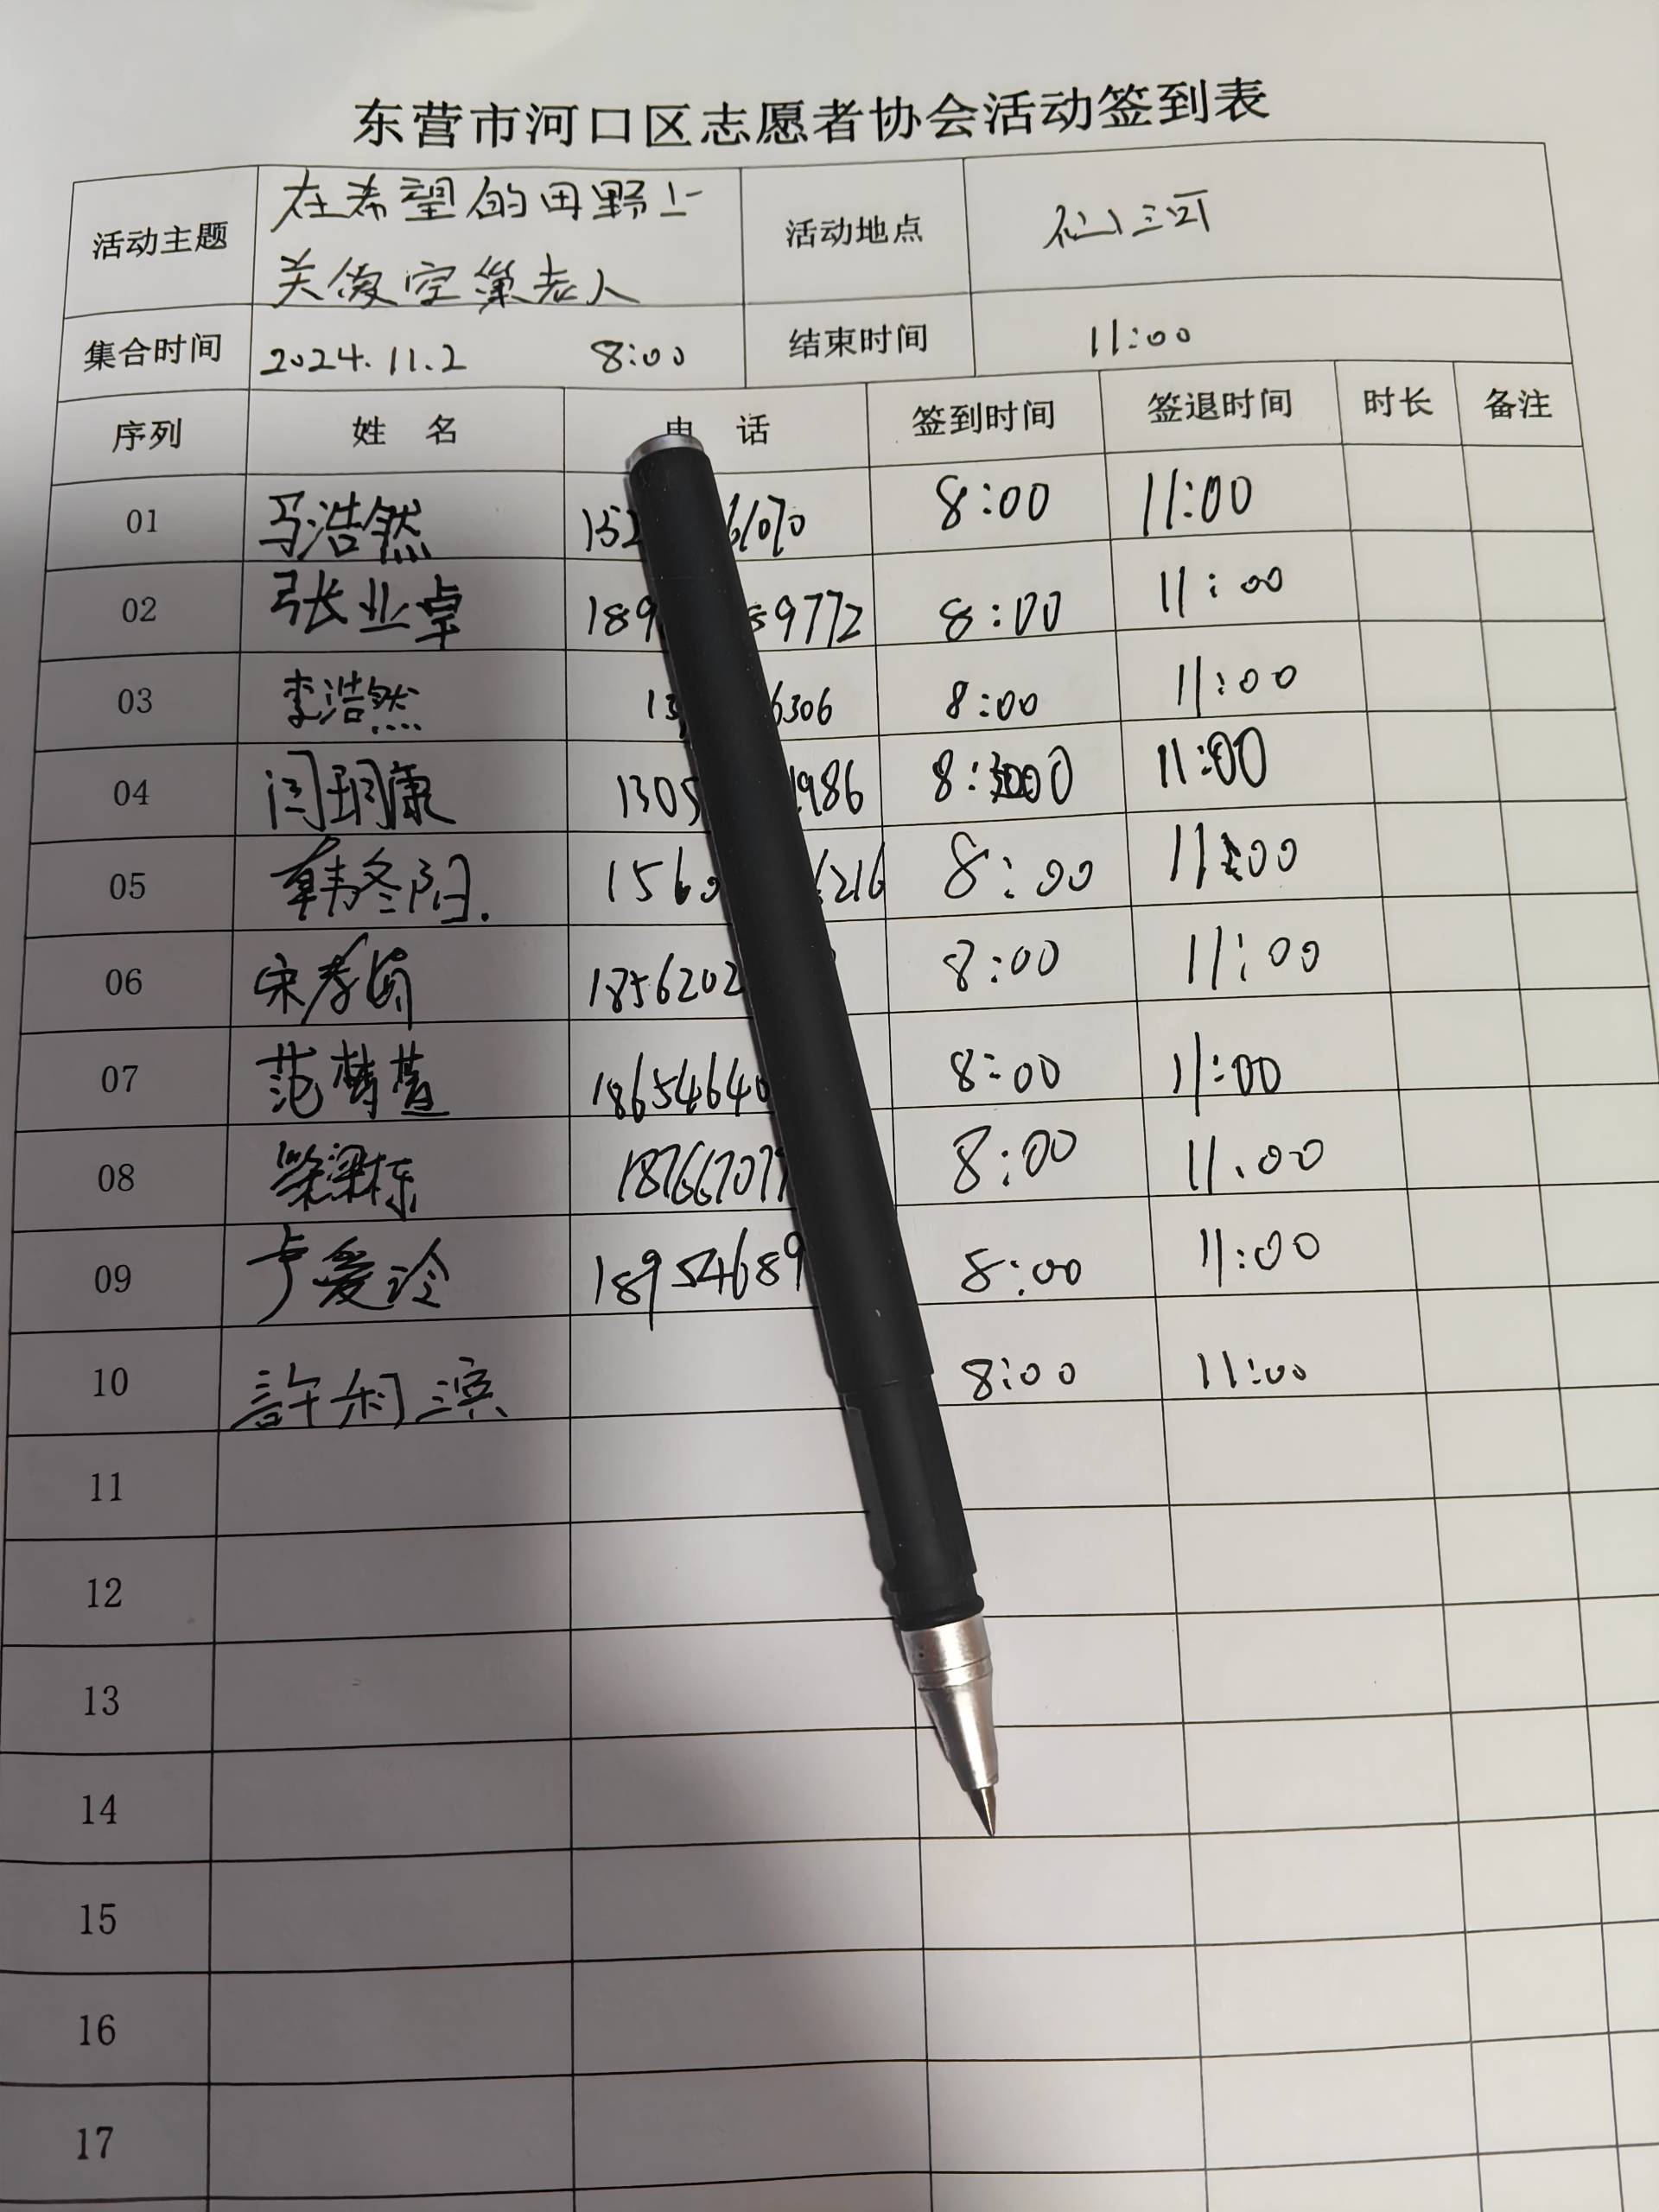 东营市河口区志愿者协会活动签到表
活动主题 在希望的田野上 活动地点 仙河
关爱空巢老人
集合时间 2024.11.2 8:00 结束时间 11:00
序列 姓 名 电 话 签到时间 签退时间 时长 备注
01 马浩然 152 61070 8:00 11:00
02 张业卓 189 89772 8:00 11:00
03 李浩然 13 6306 8:00 11:00
04 闫玥康 1305 1986 8:00 11:00
05 韩冬阳. 1560 1216 8:00 11:00
06 宋孝 1856202 8:00 11:00
07 范梦萱 18654640 8:00 11:00
08 梁栋 18766707 8:00 11:00
09 卢爱冷 18954689 8:00 11:00
10 許利滨 8:00 11:00
11
12
13
14
15
16
17